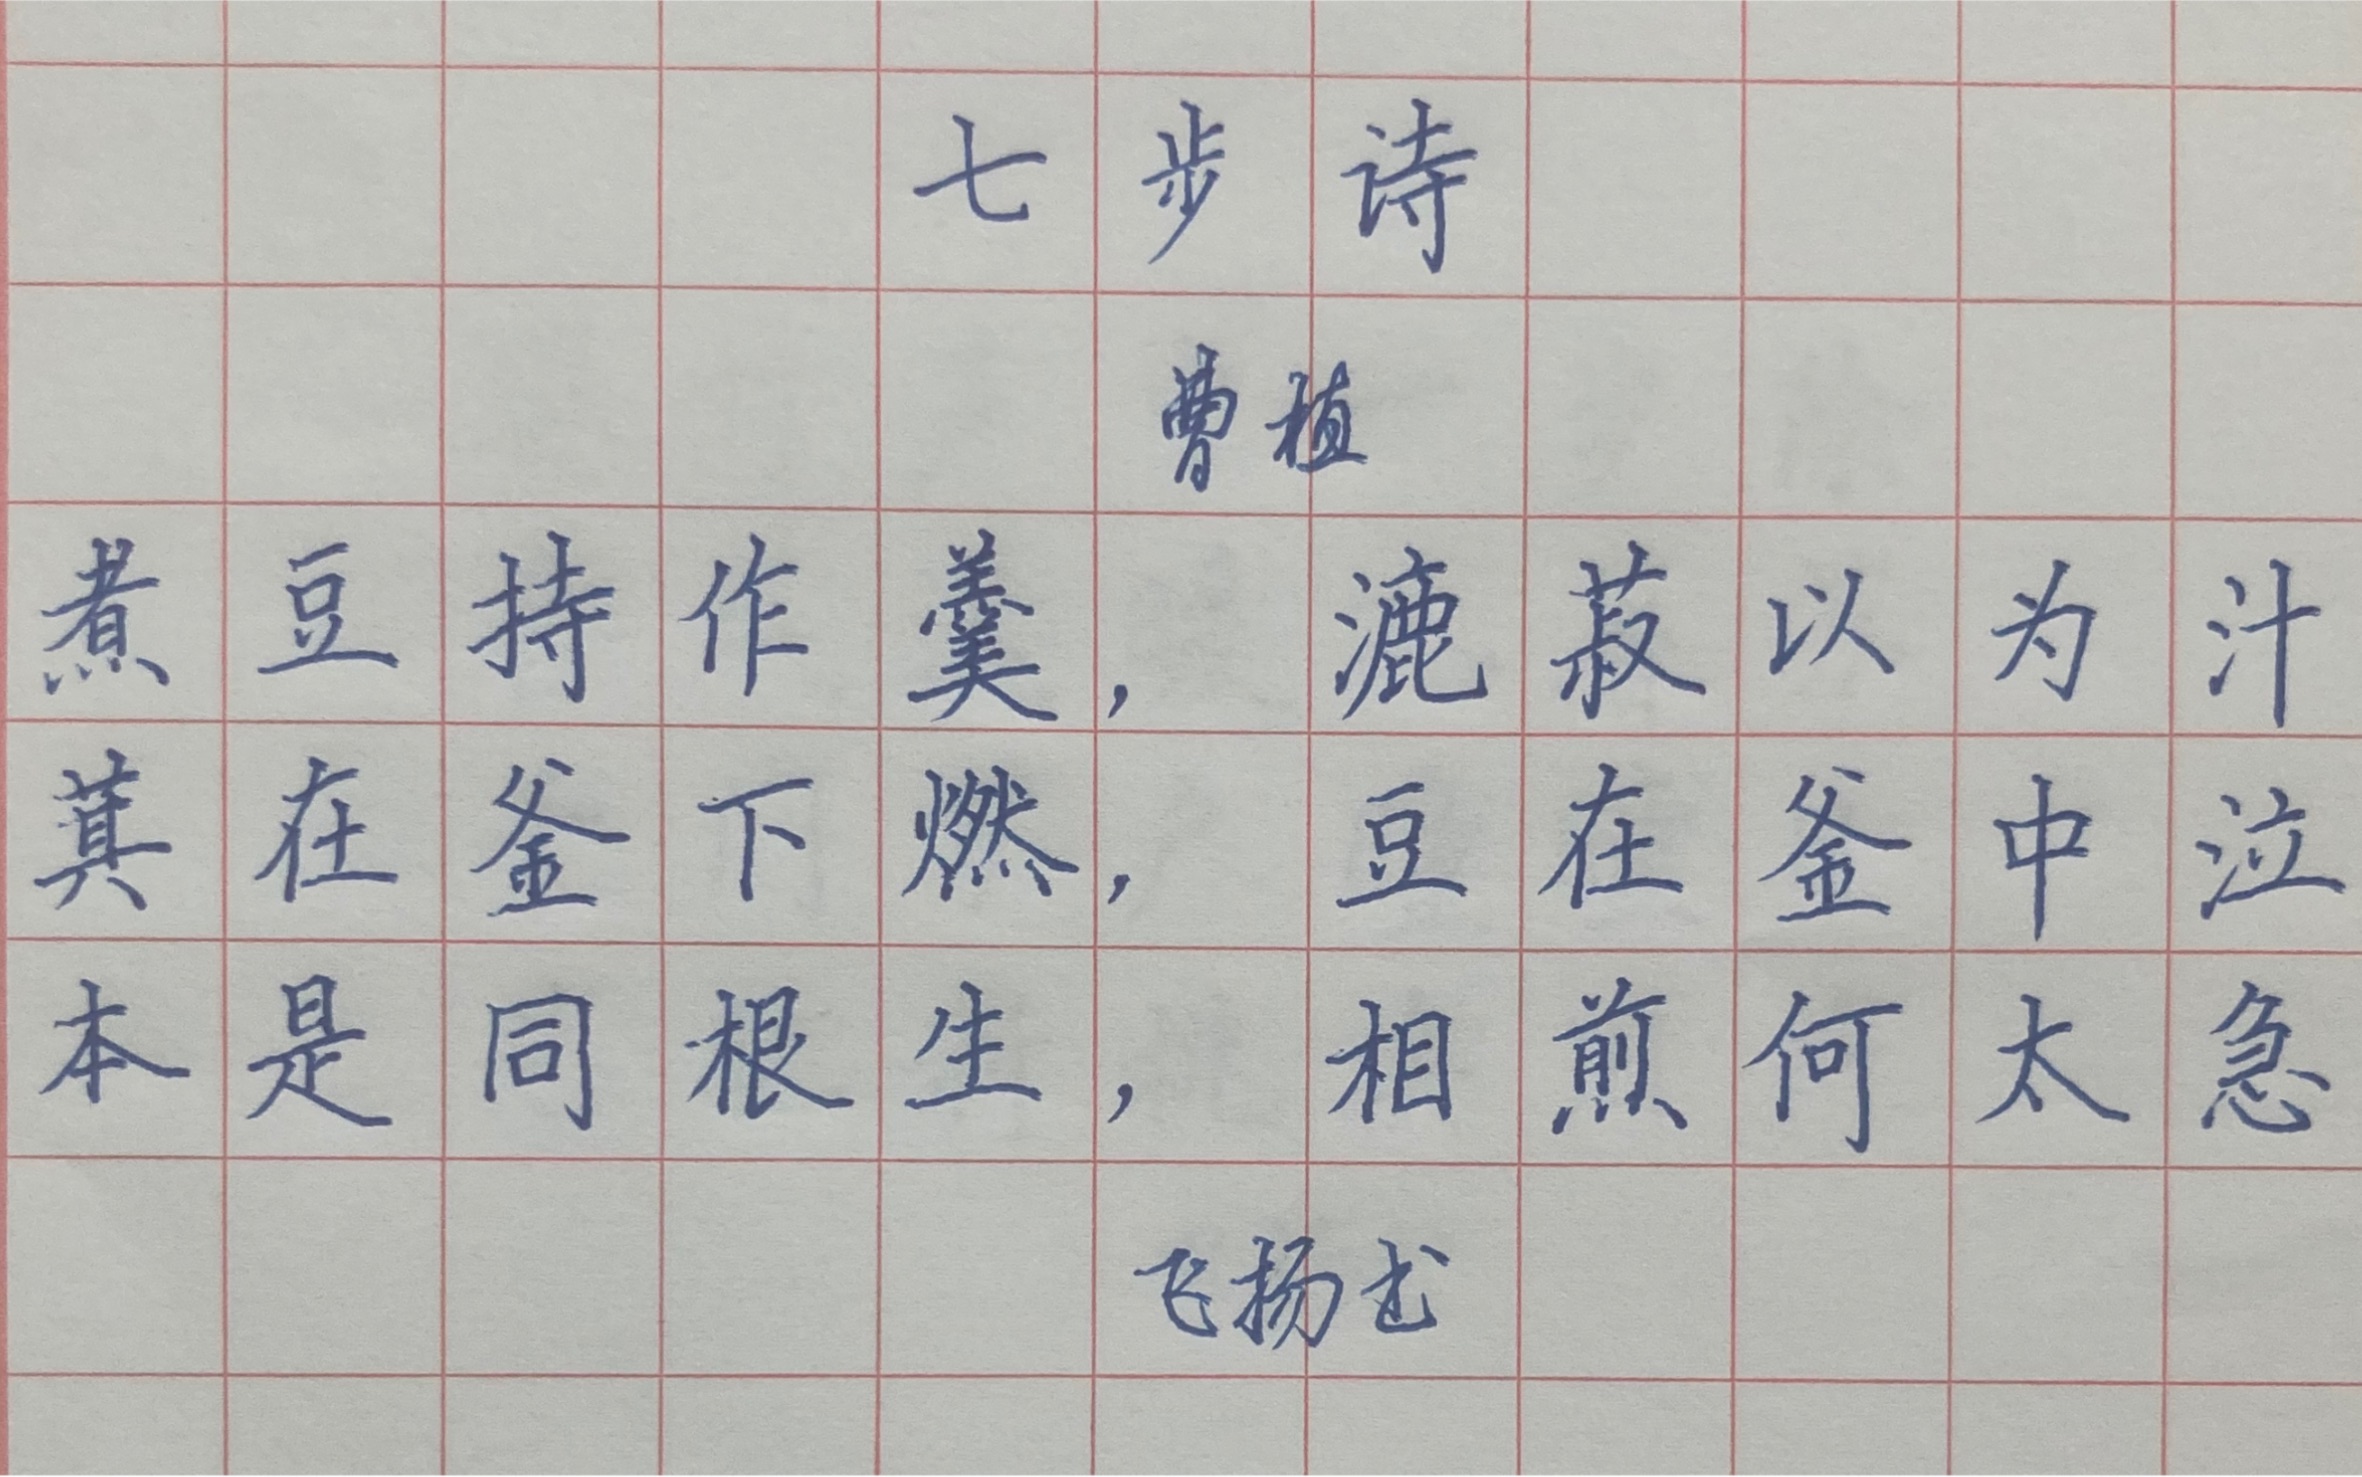 七步诗
曹植
煮豆持作羹，漉菽以为汁
萁在釜下燃，豆在釜中泣
本是同根生，相煎何太急
飞扬书